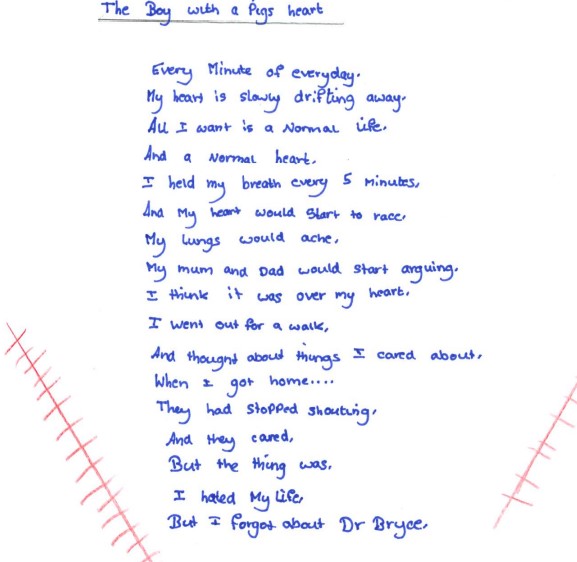 The Boy with a Pigs heart
Every Minute of everyday.
My heart is slowly drifting away.
All I want is a Normal life.
And a Normal heart.
I held my breath every 5 Minutes,
And My heart would Start to race,
My lungs would ache,
My mum and Dad would start arguing.
I think it was over my heart.
I went out for a walk,
And thought about things I cared about,
When I got home....
They had stopped shouting,
And they cared,
But the thing was,
I hated My Life,
But I forgot about Dr Bryce,